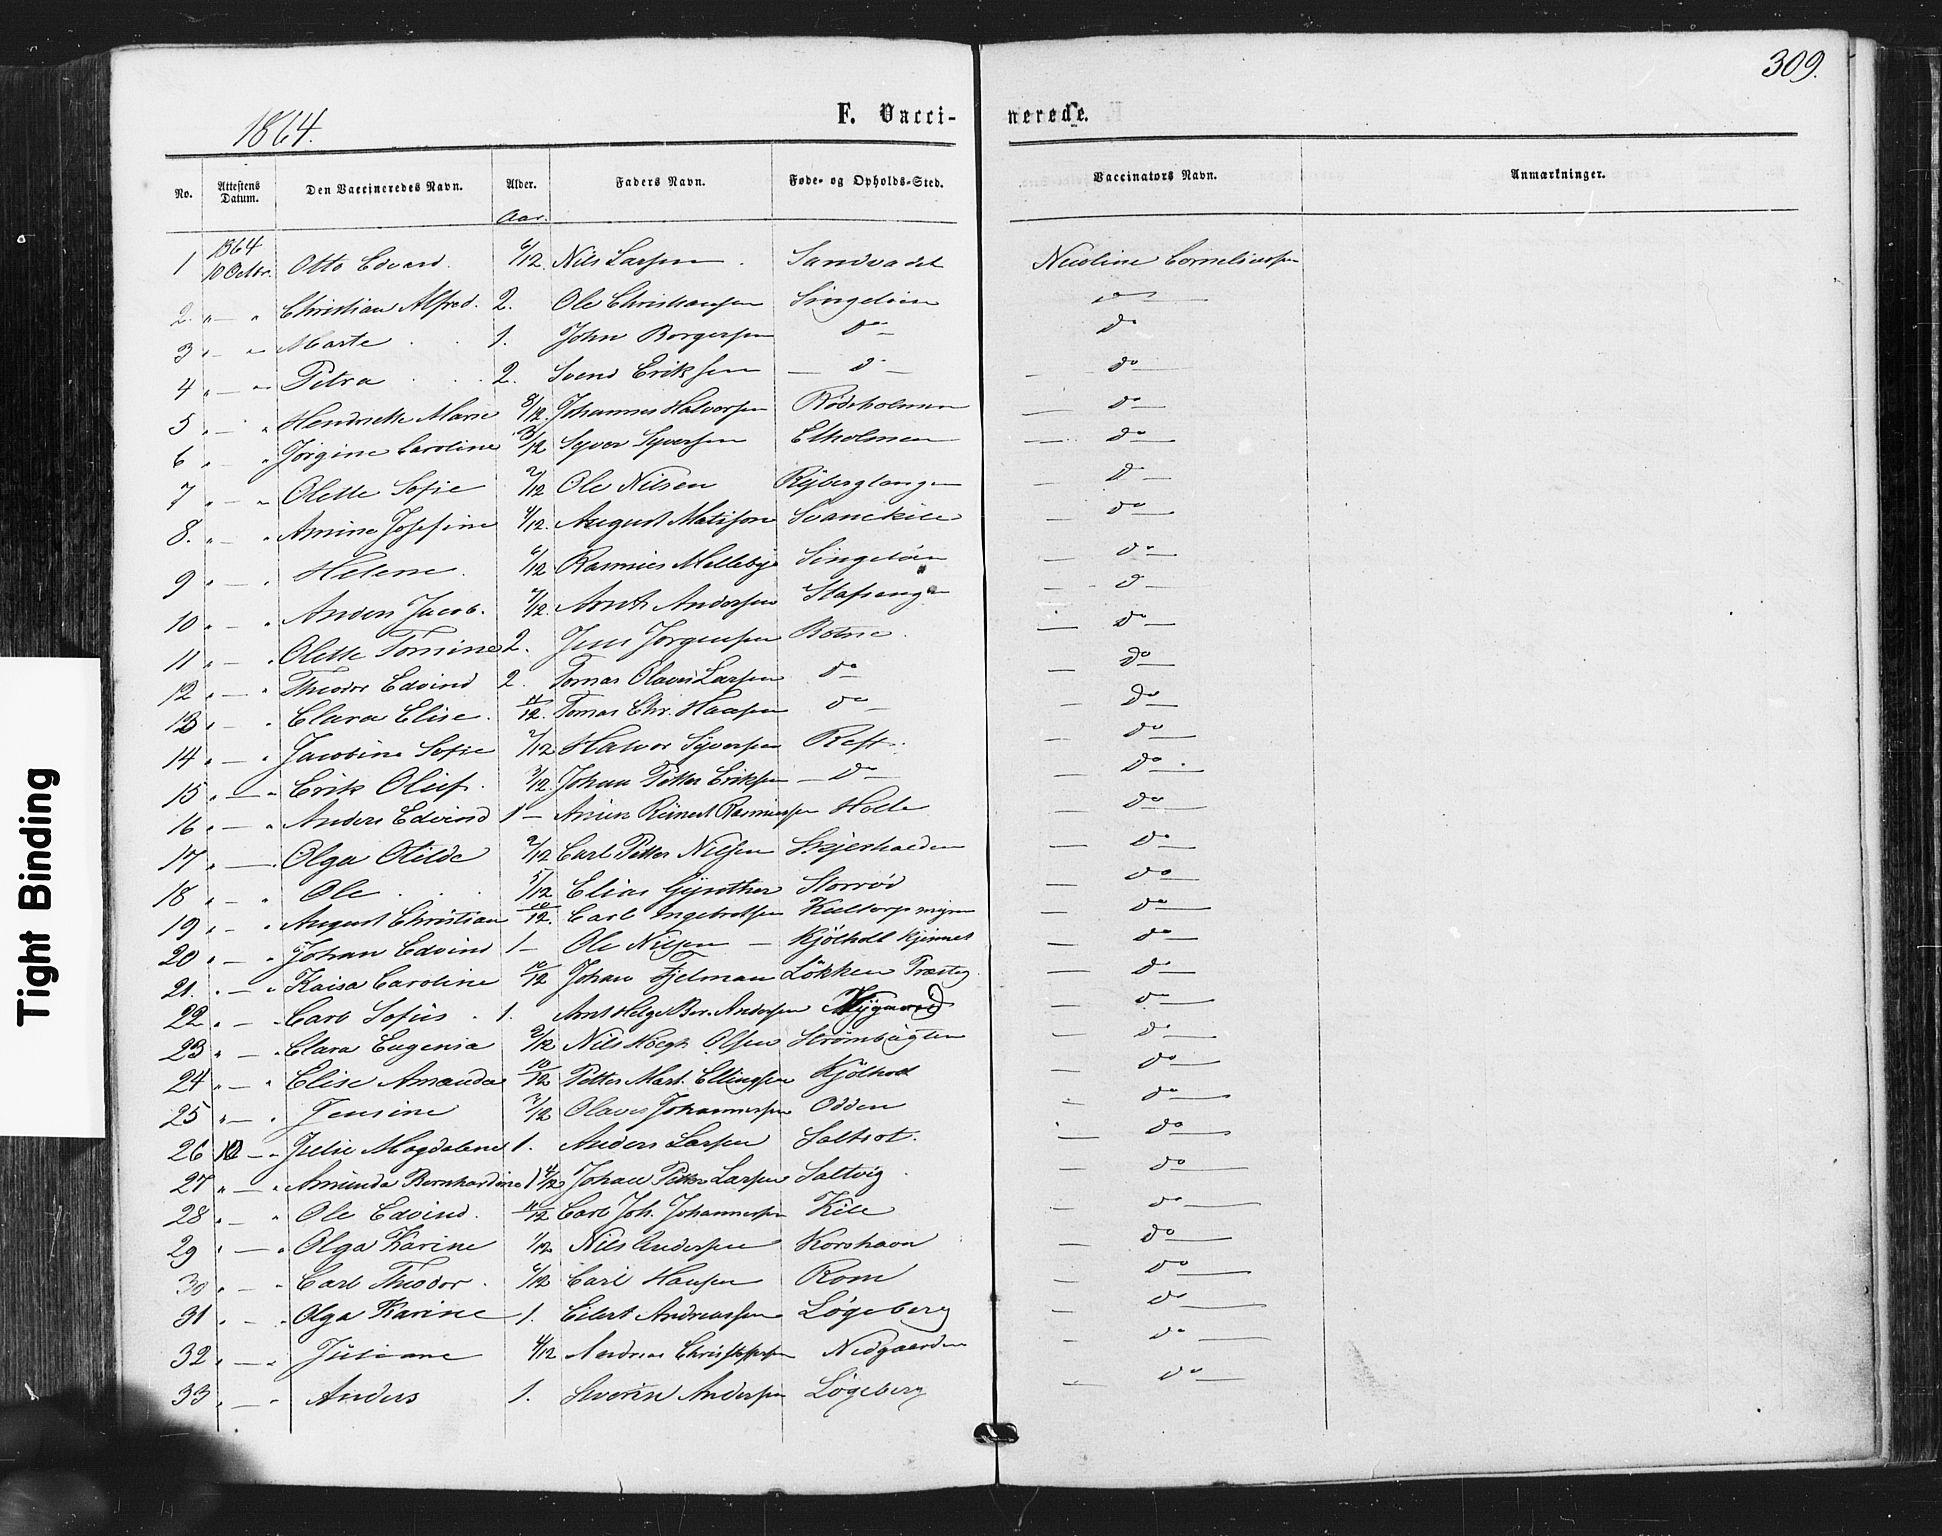 309.
1864.
F. Vacci- nerede.
No. Attestens Datum. Den Vaccineredes Navn. Alder. Faders Navn. Føde- og Opholds-Sted. Vaccinators Navn. Anmærkninger.
Aar.
1864
1 10 Octbr. Otto Edvard. 6/12 Nils Larsen. Sandvadet Nicoline Corneliussen
2. " — " Christian Alfred. 2. Ole Christiansen Singeløen do
3 " — " Marte 1. John Borgersen do do
4 " — " Petra 2. Svend Eriksen — d — do
5 " " Hendrikke Marie 8/12. Johannes Halvorsen Rødsholmen do
6 " " Jørgine Caroline 3/12 Syver Syversen Elholmen do
7 " — " Olette Sofie 2/12 Ole Nilsen do
8. " — " Amine Josefine 4/12. August Matison Svanekile do
9 " — " Helene. 6/12 Rasmus Mellebye Singeløen do
10 " — " Anders Jacob. 2/12. Arnt Andersen Stafseng d
11 " — " Olette Tomine 2. Jens Jørgensen Botne. do
12 " — " Theodor Edvind 2. Tomas Olaves Larsen do do
13 " — " Clara Elise. 11/12. Tomas Chr. Hansen do do
14 " — " Jacobine Sofie 2/12 Halvor Syversen Reff. do
15 " — " Erik Oluf. 3/12 Johan Petter Eriksen — do do
16 " — " Anders Edvind 1 — Reinert Rasmussen Holte do
17 " — " Olga Otilde 9/12 Carl Petter Nilsen Skjerhalden do
18 " — " Ole 5/12 Elias Gynther Storrød do
19 " — " August Christian 10/12. Carl Ingebretsen do
20 " — " Johan Edvind 1 — Ole Nilsen — Kjølholt do
21. " — " Kaisa Caroline 10/12 Johan Fjelman Løkken do
22 " — " Carl Sofus 1. Arnt Helge Ber. Andersen Nygaard do
23 " — " Clara Eugenia 2/12 Nils Høegh Olsen Strømbugten do
24 " — " Elise Amanda 10/12 Petter Mart. Ellingsen Kjølholt do
25 " — " Jensine 7/12 Olaves Johannessen Odden do
26 12 — " Julie Magdalene 1. Anders Larsen Saltrot. do
27 " — " Amunda Bernhardine 1 4/12 Johan Petter Larsen Saltvig do
28 " — " Ole Edvind. 11/12 Carl Joh. Johannessen Kile do
29 " — " Olga Karine 1/12 Nils Andersen Korshavn do
30 " — " Carl Theodor. 6/12 Carl Hansen Rom do
31 " — " Olga Karine 1. Eilert Andreassen Løgeberg do
32 " — " Juliane 4/12 Andreas Christoffersen Nedgaarden do
33 " — " Anders 1. Severin Andersen Løgeberg do
Tight Binding